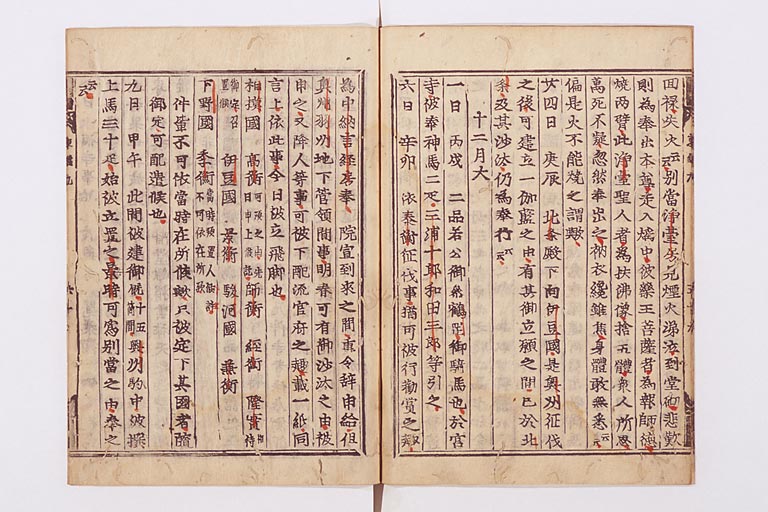 回禄失火云別当浄台房見煙火涕泣到堂砌悲歎
則為奉出本尊走入燼中彼薬王菩薩者為報師徳
焼両臂此浄台聖人者為扶仏像捨五体衆人所思
万死不疑忽然奉出之衲衣纔雖焦身体敢無恙云云
偏是火不能焼之謂歟
廿四日 庚辰 北条殿下向伊豆国是奥州征伐
之後可建立一伽藍之由有其御立願之間已於北
条及其沙汰仍為奉行云云
十二月大
一日 丙戌 二品若公御参鶴岡御騎馬也於宮
寺被奉神馬二疋三浦十郎和田三郎等引之
六日 辛卯 依泰衡征伐事猶可被行勧賞之趣
為中納言経房奉 院宣到来之間重令辞申給但
奥州羽州地下管領間事明春可有御沙汰之由被
申之又降人等事可被下配流官府之趣載一紙同
言上依此事今日被立飛脚也
相模国 高衡 師衡 経衡 隆実
伊豆国 景衡 駿河国 兼衡
下野国 季衡
件輩不可依当時在所候歟只被定下其国者随
御定可配遣候也
九日 甲午 此間被建御厩十五間奥州駒中被撰
上馬三十疋始被立置之景時可為別当之由奉之
云云